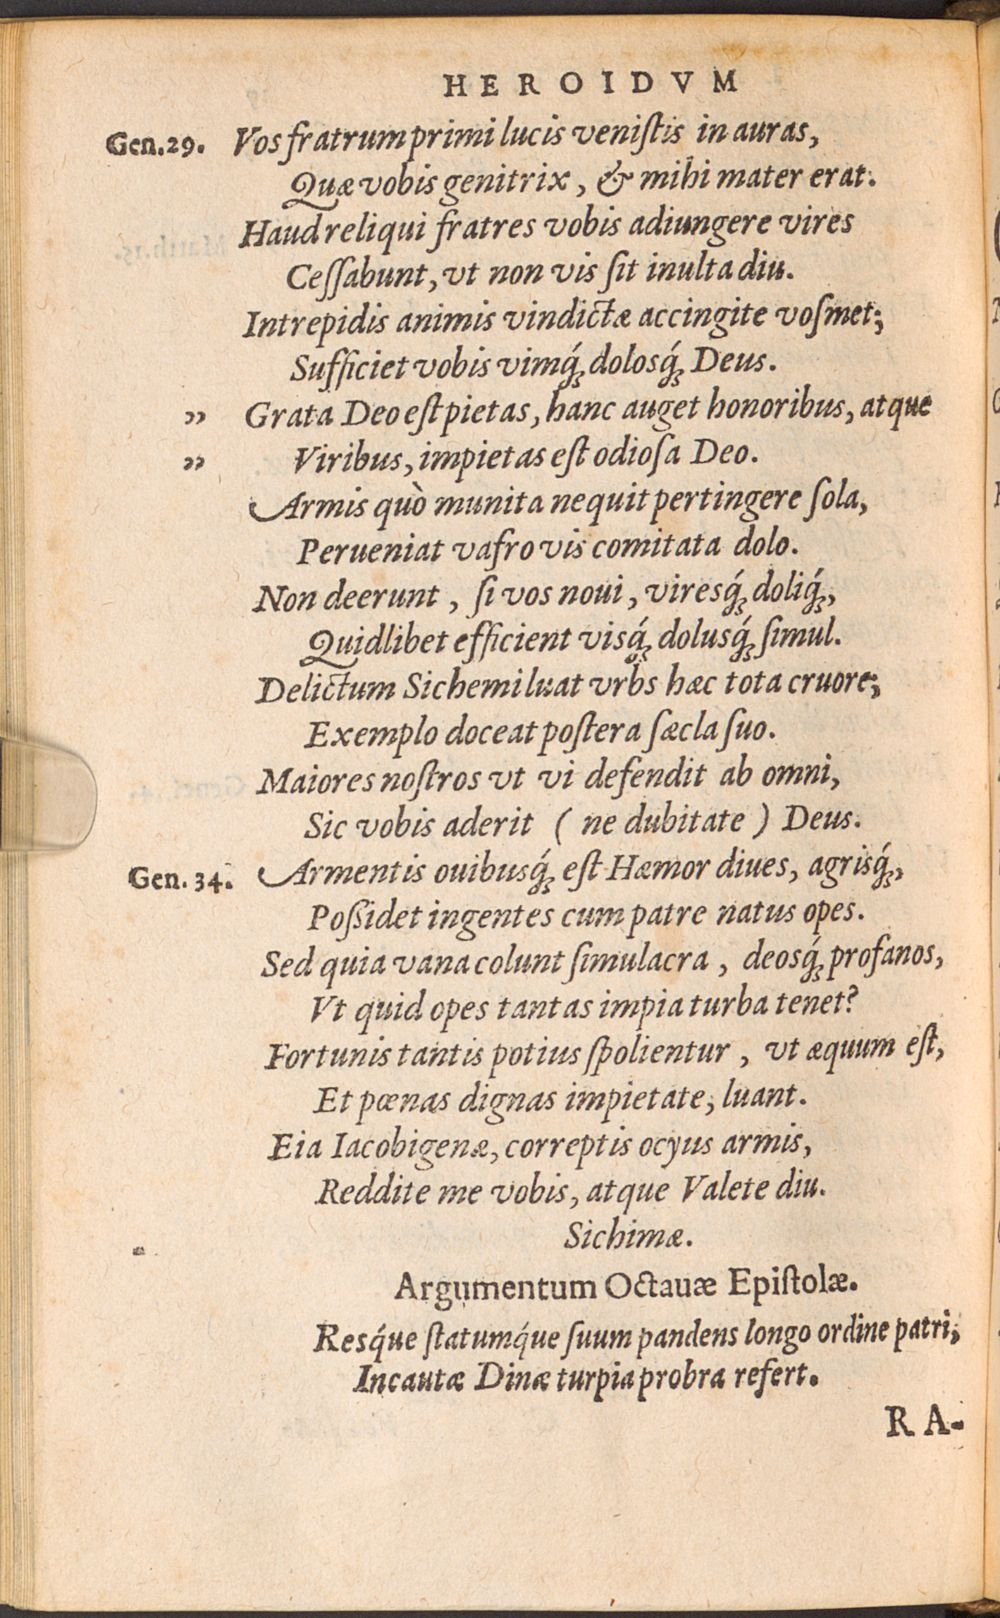 HEROIDVM
Gen.29. Vos fratrum primi lucis veniſtis in auras,
Quæ vobis genitrix, & mihi mater erat.
Haud reliqui fratres vobis adiungere vires
Ceſſabunt, vt non vis ſit inulta diu.
Intrepidis animis vindictæ accingite voſmet;
Sufficiet vobis vimq́; dolosq́; Deus.
” Grata Deo eſt pietas, hanc auget honoribus, atque
” Viribus, impietas eſt odioſa Deo.
Armis quò munita nequit pertingere ſola,
Perueniat vafro vis comitata dolo.
Non deerunt, ſi vos noui, viresq́; doliq́;,
Quidlibet efficient visq́; dolusq́; ſimul.
Delictum Sichemi luat vrbs hæc tota cruore;
Exemplo doceat poſtera ſæcla ſuo.
Maiores noſtros vt vi defendit ab omni,
Sic vobis aderit (ne dubitate) Deus.
Gen. 34. Armentis ouibusq́; eſt Hæmor diues, agrisq́;,
Poſſidet ingentes cum patre natus opes.
Sed quia vana colunt ſimulacra, deosq́; profanos,
Vt quid opes tantas impia turba tenet?
Fortunis tantis potius ſpolientur, vt æquum eſt,
Et pœnas dignas impietate, luant.
Eia Iacobigenæ, correptis ocyus armis,
Reddite me vobis, atque Valete diu.
Sichimæ.
Argumentum Octauæ Epiſtolæ.
Resq́ue ſtatumq́ue ſuum pandens longo ordine patri,
Incautæ Dinæ turpia probra refert.
RA-